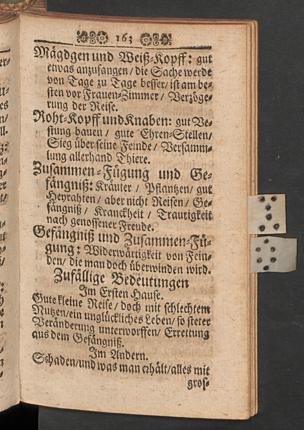 163
Mägdgen und Weiß-Kopff: gut
etwas anzufangen / die Sache werde
von Tage zu Tage besser / ist am be-
sten vor Frauen-Zimmer / Verzöge-
rung der Reise.
Roht-Kopff und Knaben: gut Ve-
stung bauen / gute Ehren-Stellen /
Sieg über seine Feinde / Versamm-
lung allerhand Thiere.
Zusammen-Fügung und Ge-
fängniß: Kräuter / Pflantzen / gut
Heyrahten / aber nicht Reisen / Ge-
fängniß / Kranckheit / Traurigkeit
nach genossener Freude.
Gefängniß und Zusammen-Fü-
gung: Widerwärtigkeit von Fein-
den / die man doch überwinden wird.
Zufällige Bedeutungen
Im Ersten Hause.
Gute kleine Reise / doch mit schlechtem
Nutzen / ein unglückliches Leben / so steter
Veränderung unterworffen / Errettung
aus dem Gefängniß.
Im Andern.
Schaden / und was man erhält / alles mit
gros-